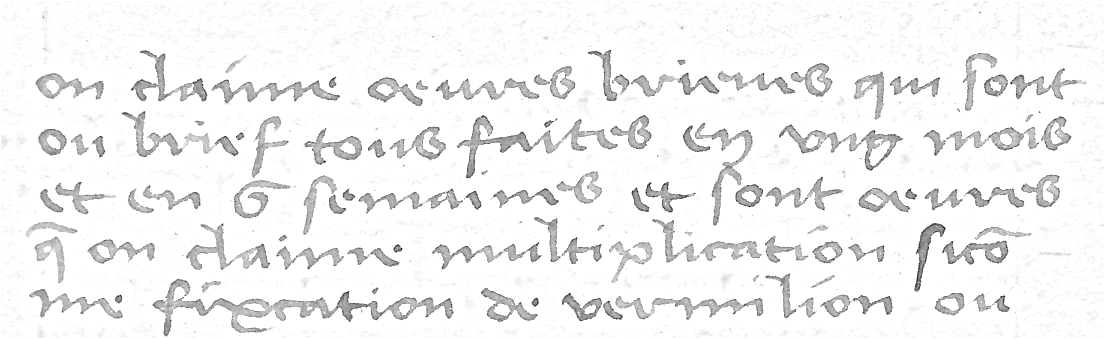 on claime oeuures brieues qui sont
ou brief tous faites en vng mois
et en 6 semaines et sont oeuures
q̄ on claime multiplication sicō
me fixcation de vermilion ou